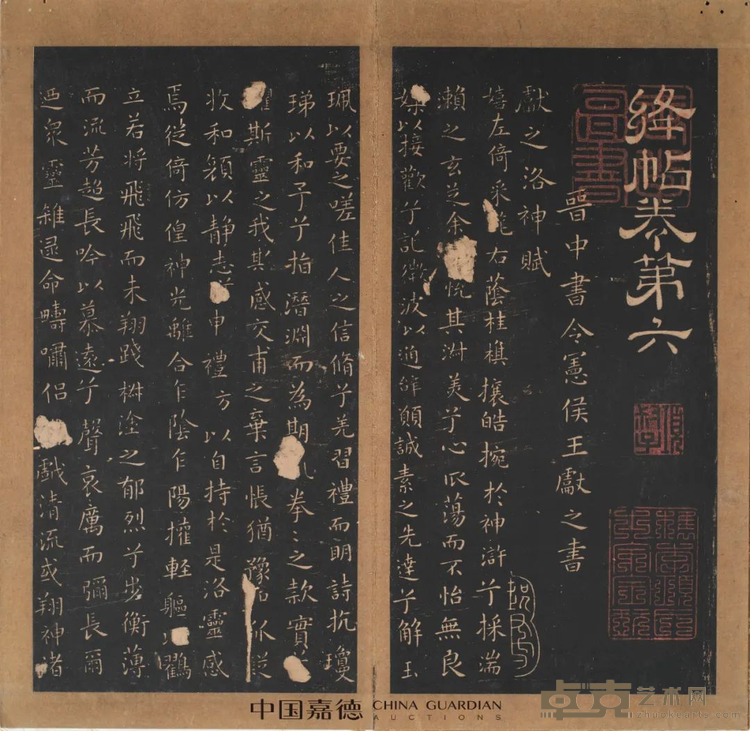 絳帖卷第六
晉中書令憲侯王獻之書
獻之洛神賦
嬉左倚采旄右蔭桂旗攘皓捥於神滸兮採湍
瀨之玄芝余悅其淑美兮心振蕩而不怡無良
媒以接歡兮託微波以通辭願誠素之先達兮解玉
珮以要之嗟佳人之信脩兮羌習禮而明詩抗瓊
珶以和予兮指潛淵而為期拳〻之款實
懼斯靈之我其感交甫之棄言悵猶豫狐疑
收和顏以靜志申禮方以自持於是洛靈感
焉徙倚仿偟神光離合乍陰乍陽擢輕軀以鸖
立若將飛飛而未翔踐椒塗之郁烈兮步衡薄
而流芳超長吟以慕遠兮聲哀厲而彌長爾
迺衆靈雜遝命疇嘯侶戲清流或翔神渚
中国嘉德 CHINA GUARDIAN
AUCTIONS
卓克艺术网